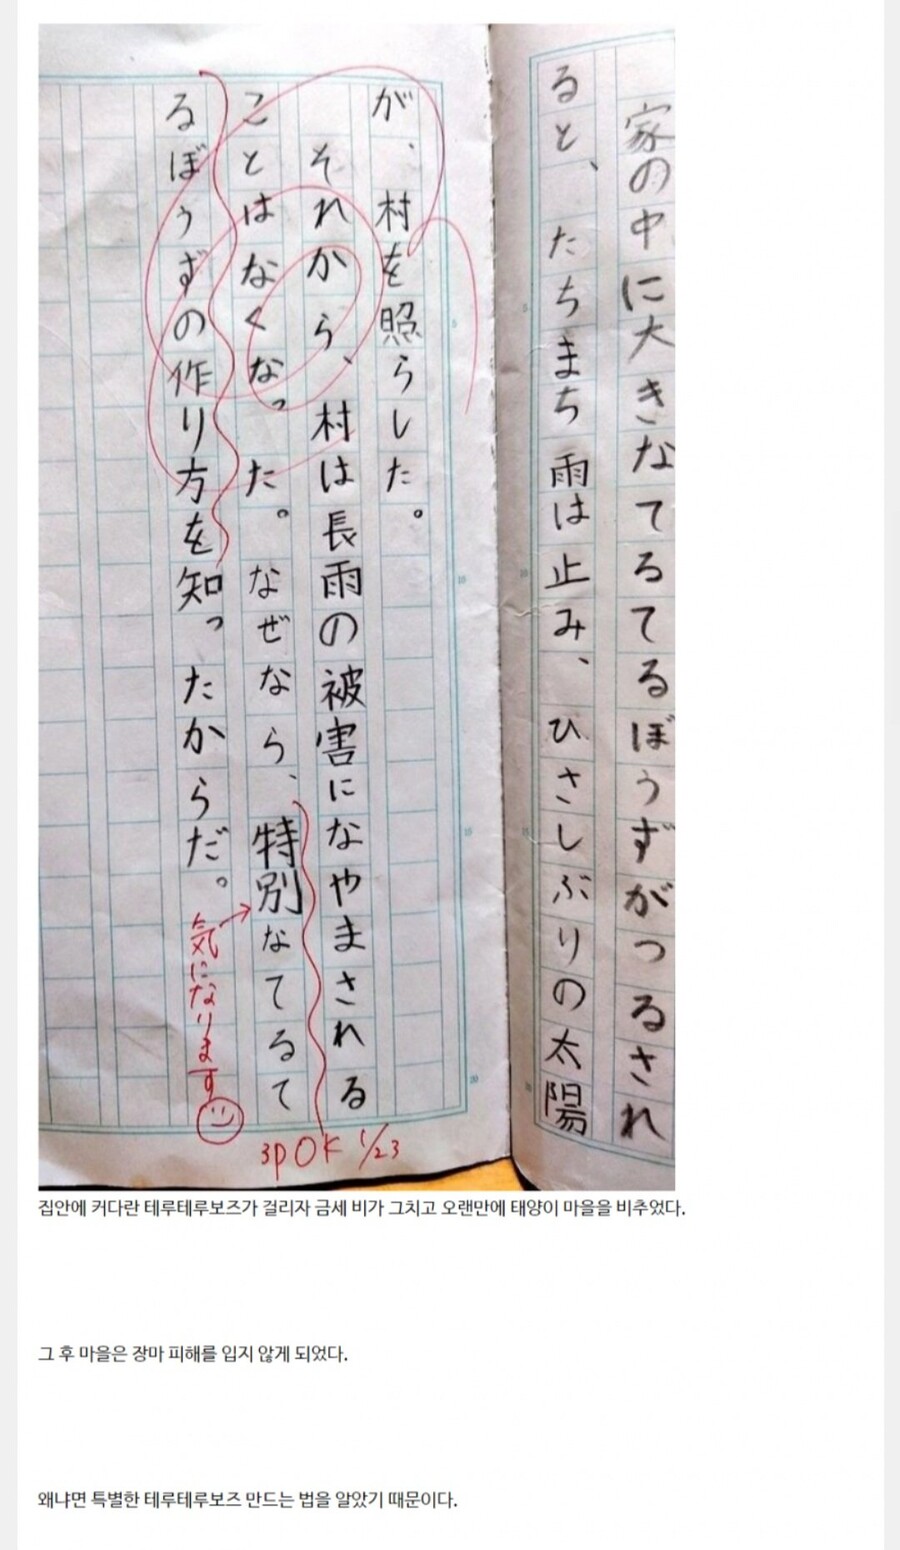 家の中に大きなてるてるぼうずがつるされ
ると、たちまち雨は止み、ひさしぶりの太陽
が、村を照らした。
それから、村は長雨の被害になやまされる
ことはなくなった。なぜなら、特別なてるて
るぼうずの作り方を知ったからだ。
気になります
3P OK 1/23
집안에 커다란 테루테루보즈가 걸리자 금세 비가 그치고 오랜만에 태양이 마을을 비추었다.
그 후 마을은 장마 피해를 입지 않게 되었다.
왜냐면 특별한 테루테루보즈 만드는 법을 알았기 때문이다.